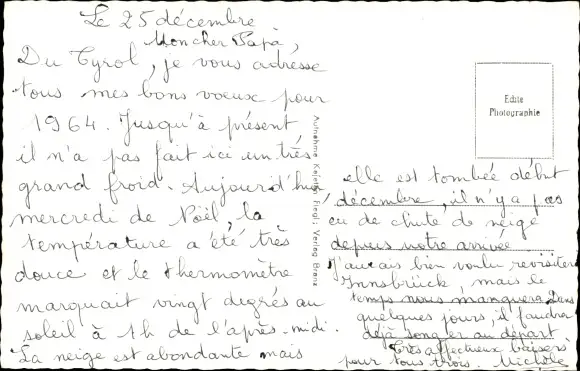 Le 25 décembre
Mon cher Papa,
Du Tyrol, je vous adresse
tous mes bons voeux pour
1964. Jusqu'à présent
il n'a pas fait ici un très
grand froid. Aujourd'hui,
mercredi de Noël, la
température a été très
douce et le thermomètre
marquait vingt degrés au
soleil à 1h de l'après-midi.
La neige est abondante mais
elle est tombée début
décembre, il n'y a pas
eu de chute de neige
depuis notre arrivée
J'aurais bien voulu revisiter
Innsbrück, mais le
temps nous manquera. Dans
quelques jours, il faudra
déjà songer au départ
Très affectueux baisers
pour tous trois. Michèle
Aufnahme Verlag
Echte
Photographie